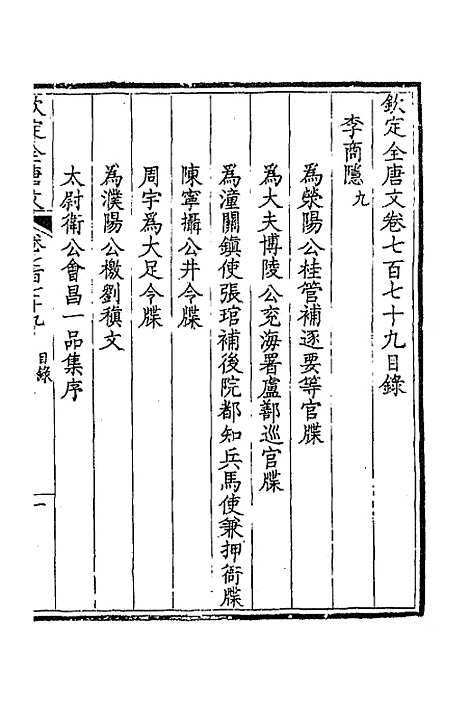 欽定全唐文卷七百七十九目錄
李商隱 九
為滎陽公桂管補逐要等官牒
為大夫博陵公兗海署盧鄯巡官牒
為潼關鎮使張琯補後院都知兵馬使兼押衙牒
陳寧攝公井令牒
周宇為大足令牒
為濮陽公檄劉稹文
太尉衛公會昌一品集序
欽定全唐文 卷七百七十九 目錄 一